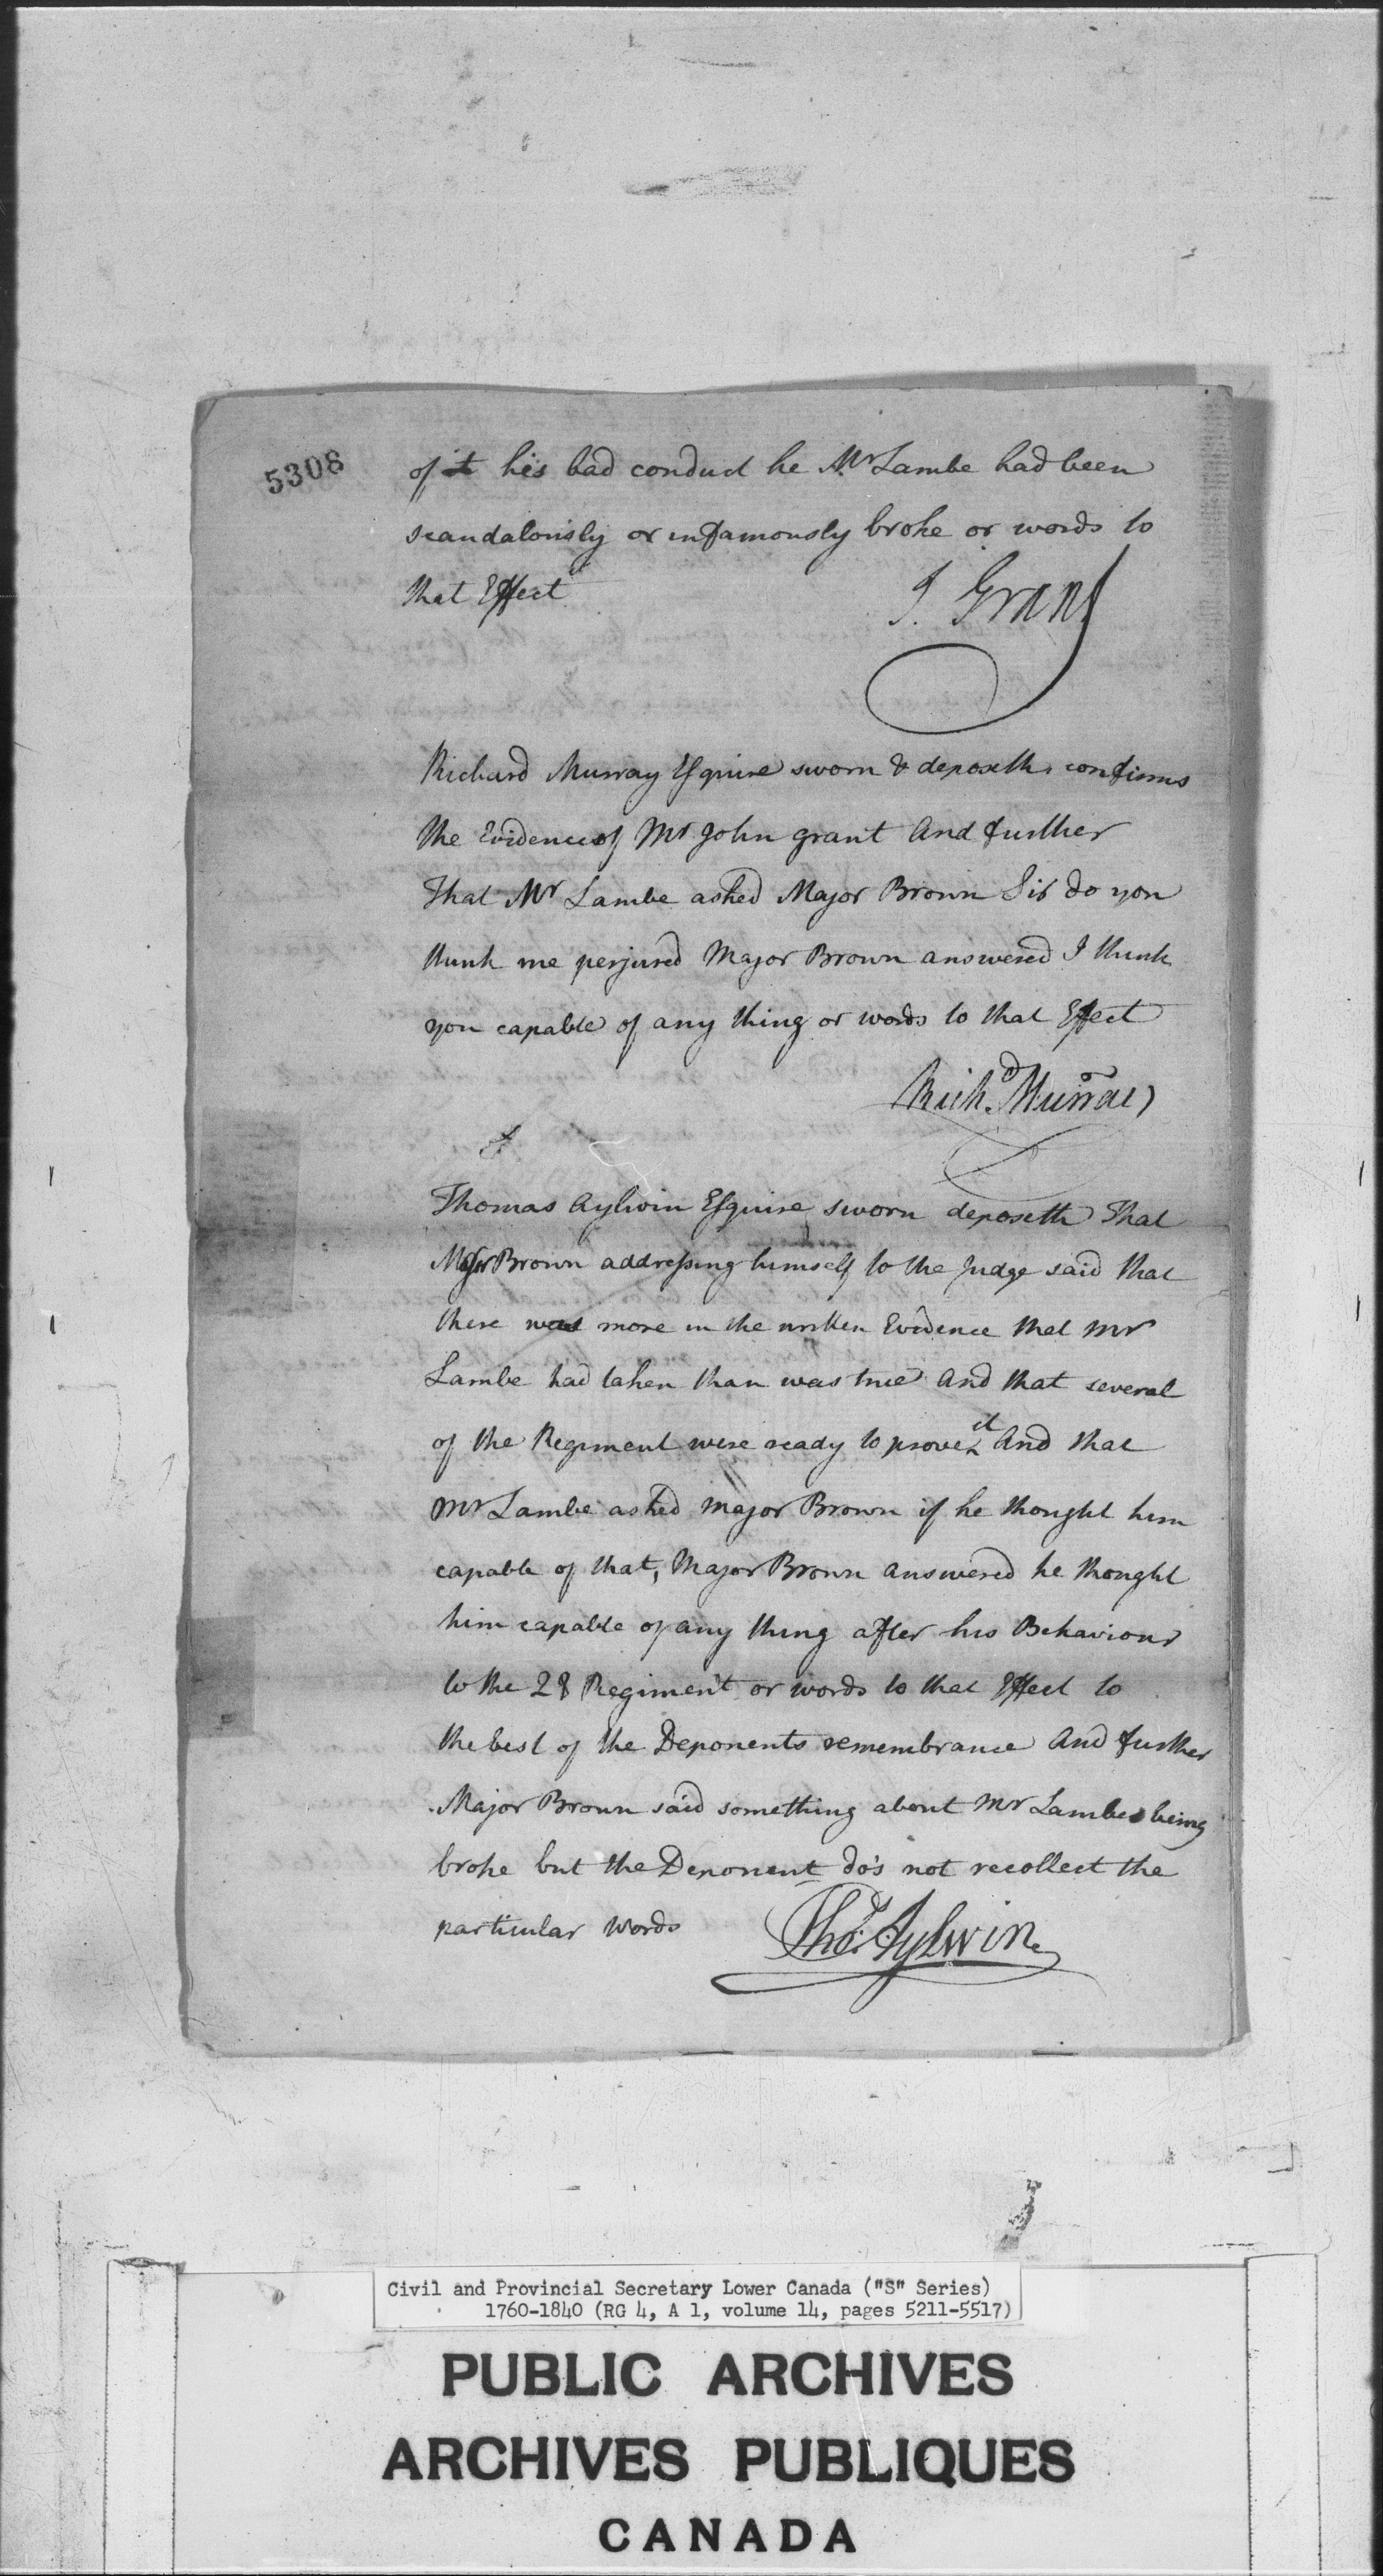 5308
of his bad conduct he Mr Lambe had been
scandalously or infamously broke or words to
that Effect
J. Grant
Richard Murray Esquire sworn & deposeth confirms
the Evidence of Mr John grant And further
That Mr Lambe asked Major Brown Sir do you
think me perjured Major Brown answered I think
you capable of any thing or words to that Effect
Richd. Murray
Thomas Aylwin Esquire sworn deposeth That
Major Brown addressing himself to the Judge said that
there was more in the written Evidence that Mr
Lambe had taken than was true And that several
of the Regiment were ready to prove it And that
Mr Lambe asked Major Brown if he thought him
capable of that, Major Brown answered he thought
him capable of any thing after his Behaviour
to the 28 Regiment or words to that Effect to
the best of the Deponents remembrance And further
Major Brown said something about Mr Lambe being
broke but the Deponent do's not recollect the
particular words
Thos. Aylwin
Civil and Provincial Secretary Lower Canada ("S" Series)
1760-1840 (RG 4, A 1, volume 14, pages 5211-5517)
PUBLIC ARCHIVES
ARCHIVES PUBLIQUES
CANADA